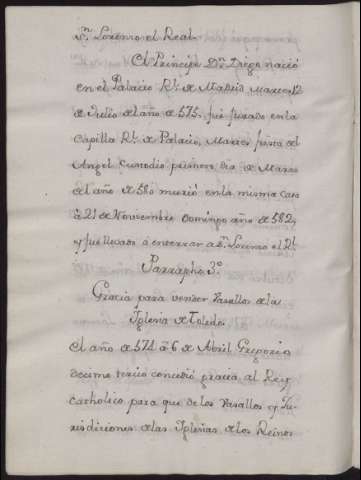 Sn. Lorenzo el Real.
El Principe Dn. Diego nació
en el Palacio Rl. de Madrid Martes 12
de Julio del año de 575, fue jurado en la
Capilla Rl. de Palacio, Martes fiesta del
Angel Custodio primero dia de Marzo
del año de 580 murió en la misma Casa
à 21 de Noviembre Domingo año de 582,
y fue llevado à enterrar a Sn. Lorenzo el Rl.
Paragpho 3º
Gracia para vender Vasallos de la
Iglesia de Toledo.
El año de 574 à 6 de Abril Gregorio
decimo tercio concedió gracia al Rey
Catholico para que de los Vasallos y Ju-
risdiciones de las Iglesias de los Reinos